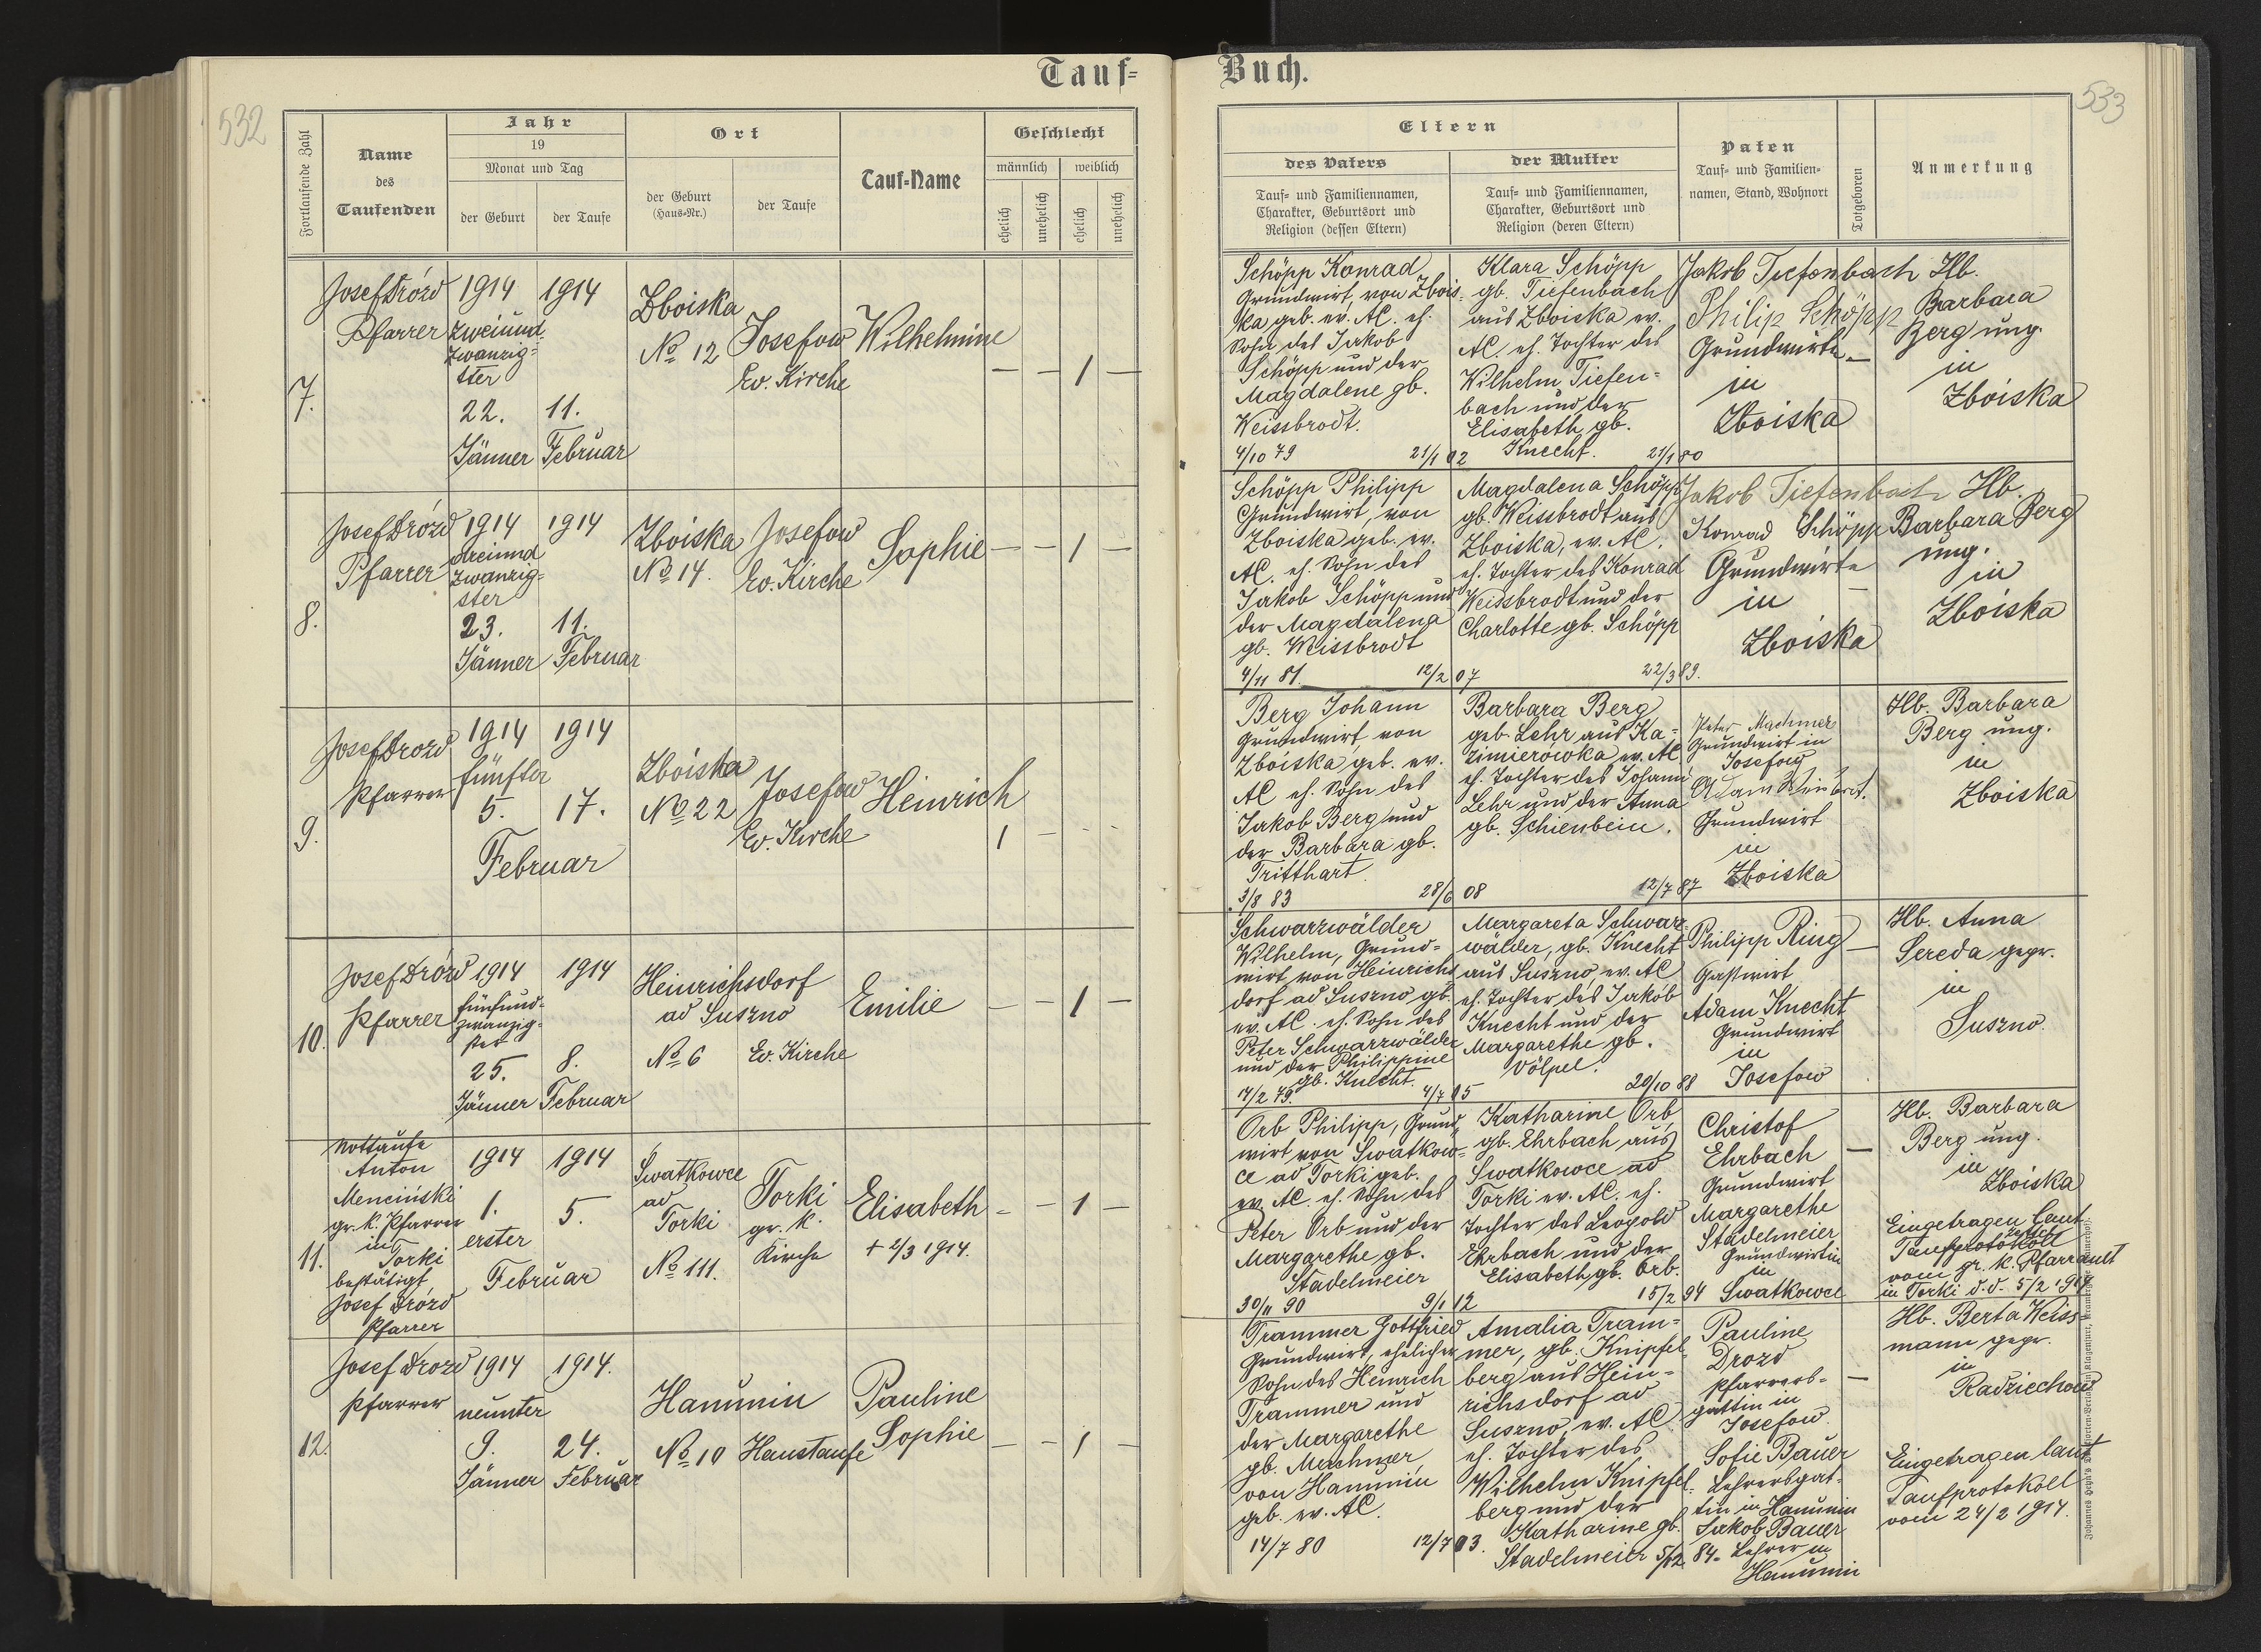 532
Tauf-
Fortlaufende Zahl
Name
des
Taufenden
Jahr
19
Monat und Tag
der Geburt
der Taufe
Ort
der Geburt
(Haus-Nr.)
der Taufe
Tauf-Name
Geschlecht
männlich
weiblich
ehelich
unehelich
ehelich
unehelich
7.
Josef Drózd
Pfarrer
1914
zweiund
zwanzig=
ster
22.
Jänner
1914
11.
Februar
Zboiska
No 12
Josefow
Ev. Kirche
Wilhelmine
— — 1 —
8.
Josef Drózd
Pfarrer
1914
dreiund
zwanzig=
ster
23.
Jänner
1914
11.
Februar
Zboiska
No 14.
Josefow
Ev. Kirche
Sophie
— — 1 —
9.
Josef Drozd
Pfarrer
1914
fünfter
5.
1914
17.
Februar
Zboiska
No 22
Josefow
Ev. Kirche
Heinrich
1 — - -
10.
Josef Drózd
Pfarrer
1914
fünfund=
zwanzig=
ster
25.
Jänner
1914
8.
Februar
Heinrichsdorf
ad Suszno
No 6
Ev. Kirche
Emilie
— — 1 —
11.
Nottaufe
Anton
Menciński
gr. k. Pfarrer
in
Torki
bestätigt
Josef Drózd
Pfarrer
1914
1.
erster
1914
5.
Februar
Swatkowce
ad
Torki
No 111.
Torki
gr. k.
Kirche
Elisabeth
+ 2/3 1914.
- - 1 —
12.
Josef Drozd
Pfarrer
1914
neunter
9.
Jänner
1914.
24.
Februar
Hanunin
No 10
Haustaufe
Pauline
Sophie
— — 1 —
Buch.
533
Eltern
des Vaters
Tauf- und Familiennamen,
Charakter, Geburtsort und
Religion (dessen Eltern)
der Mutter
Tauf- und Familiennamen,
Charakter, Geburtsort und
Religion (deren Eltern)
Paten
Tauf- und Familien-
namen, Stand, Wohnort
Totgeboren
Anmerkung
Schöpp Konrad
Grundwirt, von Zbois=
ka geb. ev. AC. eh.
Sohn des Jakob
Schöpp und der
Magdalene gb.
Weissbrodt.
4/10 79
21/1 02
Klara Schöpp
gb. Tiefenbach
aus Zboiska ev.
AC. eh. Tochter des
Wilhelm Tiefen=
bach und der
Elisabeth gb.
Knecht.
21/1 80
Jakob Tiefenbach
Philip Schöpp
Grundwirte
in
Zboiska
—
Hb.
Barbara
Berg ung.
in
Zboiska
Schöpp Philipp
Grundwirt, von
Zboiska geb. ev.
AC. eh. Sohn des
Jakob Schöpp und
der Magdalena
gb. Weissbrodt
4/11 81.
12/2 07
Magdalena Schöpp
gb. Weissbrodt aus
Zboiska, ev. AC.
eh. Tochter des Konrad
Weissbrodt und der
Charlotte gb. Schöpp
22/3 89.
Jakob Tiefenbach
Konrad Schöpp
Grundwirte
in
Zboiska
—
Hb.
Barbara Berg
ung.
in
Zboiska
Berg Johann
Grundwirt von
Zboiska geb. ev.
AC eh. Sohn des
Jakob Berg und
der Barbara gb.
Tritthart
3/8 83
28/6 08
Barbara Berg
geb. Lehr aus Ka=
zimierówka ev. AC
eh. Tochter des Johann
Lehr und der Anna
gb. Schienbein.
12/7 87
Peter Machmer
Grundwirt in
Josefow
Adam
Grundwirt
in
Zboiska
Hb. Barbara
Berg ung.
in
Zboiska
Schwarzwälder
Wilhelm, Grund=
wirt, von Heinrichs
dorf ad Suszno gb.
ev. AC. eh. Sohn des
Peter Schwarzwälder
und der Philippine
gb. Knecht.
17/2 79.
4/7 05
Margareta Schwarz
wälder, gb. Knecht
aus Suszno, ev. AC
eh. Tochter des Jakob
Knecht und der
Margarethe gb.
Völpel.
20/10 88
Philipp Ring
Gastwirt
Adam Knecht
Grundwirt
in
Josefow
—
Hb. Anna
Sereda gepr.
in
Suszno.
Orb Philipp, Grund
wirt von Swatkow=
ce ad Torki geb.
ev. AC. eh. Sohn des
Peter Orb und der
Margarethe gb.
Stadelmeier
30/11 90
9/1 12
Katharine Orb,
gb. Ehrbach aus
Swatkowce ad
Torki ev. AC. eh.
Tochter des Leopold
Ehrbach und der
Elisabeth gb. Orb.
15/2 94
Christof
Ehrbach
Grundwirt
Margarethe
Stadelmeier
Grundwirtin
in
Swatkowce
—
Hb. Barbara
Berg ung.
in
Zboiska
Eingetragen laut
Taufprotokoll
vom gr. k. Pfarramt
in Torki d.d. 5/2 1914
Trammer Gottfried
Grundwirt, ehelicher
Sohn des Heinrich
Trammer und
der Margarethe
gb. Machmer,
von Hanunin
geb. ev. AC.
14/7 80
12/7 03.
Amalia Tram=
mer, gb. Knipfel=
berg aus Hein=
richsdorf ad
Suszno, ev. AC
eh. Tochter des
Wilhelm Knipfel=
berg und der
Katharine gb.
Stadelmeier 5/12 84.
Pauline
Drozd
Pfarrers=
gattin in
Josefow.
Sofie Bauer
Lehrersgat=
tin in Hanunin
Jakob Bauer
Lehrer in
Hanunin
—
Hb. Berta Weiss=
mann gepr.
in
Radziechow
Eingetragen laut
Taufprotokoll
vom 24/2 1914.